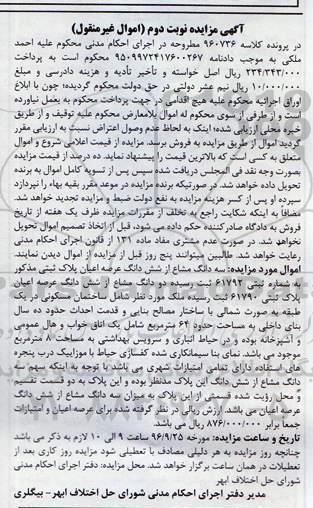 آگهی مزایده نوبت دوم (اموال غیرمنقول)
در پرونده کلاسه ۹۶۰۷۳۶ مطروحه در اجرای احکام مدنی محکوم علیه احمد
ملکی به موجب دادنامه ۹۵۰۹۹۷۲۴۱۷۶۰۰۲۶۷ محکوم است به پرداخت
۲۳۴/۳۴۳/۰۰۰ ریال اصل خواسته و تأخیر تأدیه و هزینه دادرسی و مبلغ
۱۰/۰۰۰/۰۰۰ ریال نیم عشر دولتی در حق دولت محکوم گردیده؛ چون با ابلاغ
اوراق اجرائیه محکوم علیه هیچ اقدامی در جهت پرداخت محکوم به بعمل نیاورده
است و از طرفی از سوی محکوم له اموال بلامعارض محکوم علیه توقیف و از طریق
خبره محلی ارزیابی شده؛ اینک به لحاظ عدم وصول اعتراض نسبت به ارزیابی مقرر
گردید اموال از طریق مزایده به فروش برسد. مزایده از قیمت اعلامی شروع و اموال
متعلق به کسی است که بالاترین قیمت را پیشنهاد نماید. ده درصد از قیمت مزایده
بصورت وجه نقد فی المجلس دریافت شده سپس پس از تسویه کامل اموال به برنده
تحویل داده خواهد شد. در صورتیکه برنده مزایده در موعد مقرر بقیه بهاء را نپردازد
سپرده او پس از کسر هزینه مزایده به نفع دولت ضبط و مزایده تجدید خواهد شد.
مضافا به اینکه شکایت راجع به تخلف از مقررات مزایده ظرف یک هفته از تاریخ
فروش به دادگاه صادرکننده حکم داده می شود، قبل از اتخاذ تصمیم اموال تحویل
نخواهد شد. در صورت عدم مشتری مفاد ماده ۱۳۱ از قانون اجرای احکام مدنی
رعایت خواهد شد. طالبین میتوانند پنج روز قبل از مزایده از اموال دیدن نمایند.
اموال مورد مزایده: سه دانگ مشاع از شش دانگ عرصه اعیان پلاک ثبتی مذکور
به شماره ثبتی ۶۱۷۹۲ ثبت رسیده دو دانگ مشاع از شش دانگ عرصه اعیان
پلاک ثبتی ۶۱۷۹۰ ثبت رسیده ملک مورد نظر شامل ساختمان مسکونی در یک
طبقه به صورت شمالی با ساختار مصالح بنایی و قدمت احداث حدود ده سال
بنای داخلی به مساحت حدود ۶۲ مترمربع شامل یک اتاق خواب و هال عمومی
و آشپزخانه بوده و در حیاط انباری و سرویس بهداشتی به مساحت ۸ مترمربع
موجود می باشد. نمای بنا سیمانکاری شده کفسازی حیاط با موزاییک درب پنجره
های استفاده دارای تمامی امتیازات شهری می باشد با توجه به اینکه سهم سه
دانگ مشاع از شش دانگ این پلاک مدنظر بوده و این پلاک به دو قسمت تقسیم
و محل رؤیت شده قسمتی از این پلاک به میزان سه دانگ مشاع از شش دانگ
عرصه اعیان می باشد. ارزش ریالی در نظر گرفته شده برای عرصه اعیان و امتیازات
جمعا برابر ۸۷۶/۰۰۰/۰۰۰ ریال می باشد
تاریخ و ساعت مزایده: مورخه ۹۶/۹/۲۵ ساعت ۹ الی ۱۰ لازم به ذکر می باشد
چنانچه روز مزایده به هر دلیلی مصادف با تعطیلی شود مزایده روز کاری بعد از
تعطیلات در همان ساعت برگزار خواهد شد. محل مزایده: دفتر اجرای احکام مدنی
شورای حل اختلاف ابهر
مدیر دفتر اجرای احکام مدنی شورای حل اختلاف ابهر- بیگلری